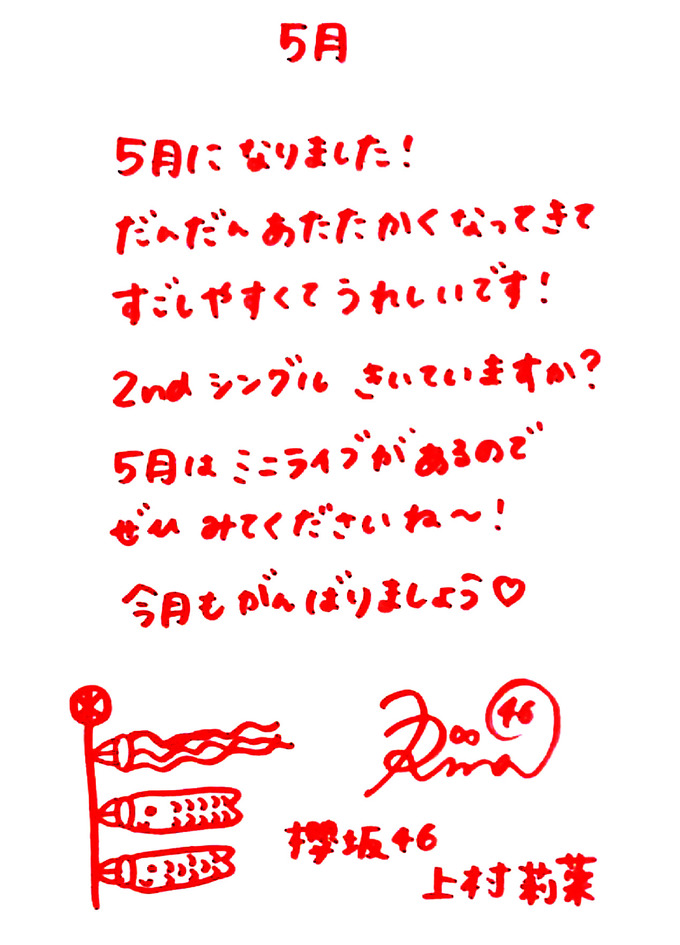 5月
5月になりました！
だんだんあたたかくなってきて
すごしやすくてうれしいです！
2nd シングル きいていますか？
5月はミニライブがあるので
ぜひみてくださいね〜！
今月もがんばりましょう♡
46
Rina
櫻坂46
上村莉菜